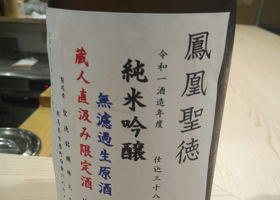 鳳凰聖徳
令和一酒造年度 仕込三十八
純米吟醸
無濾過生原酒
蔵人直汲み限定酒
製造者 聖徳銘醸